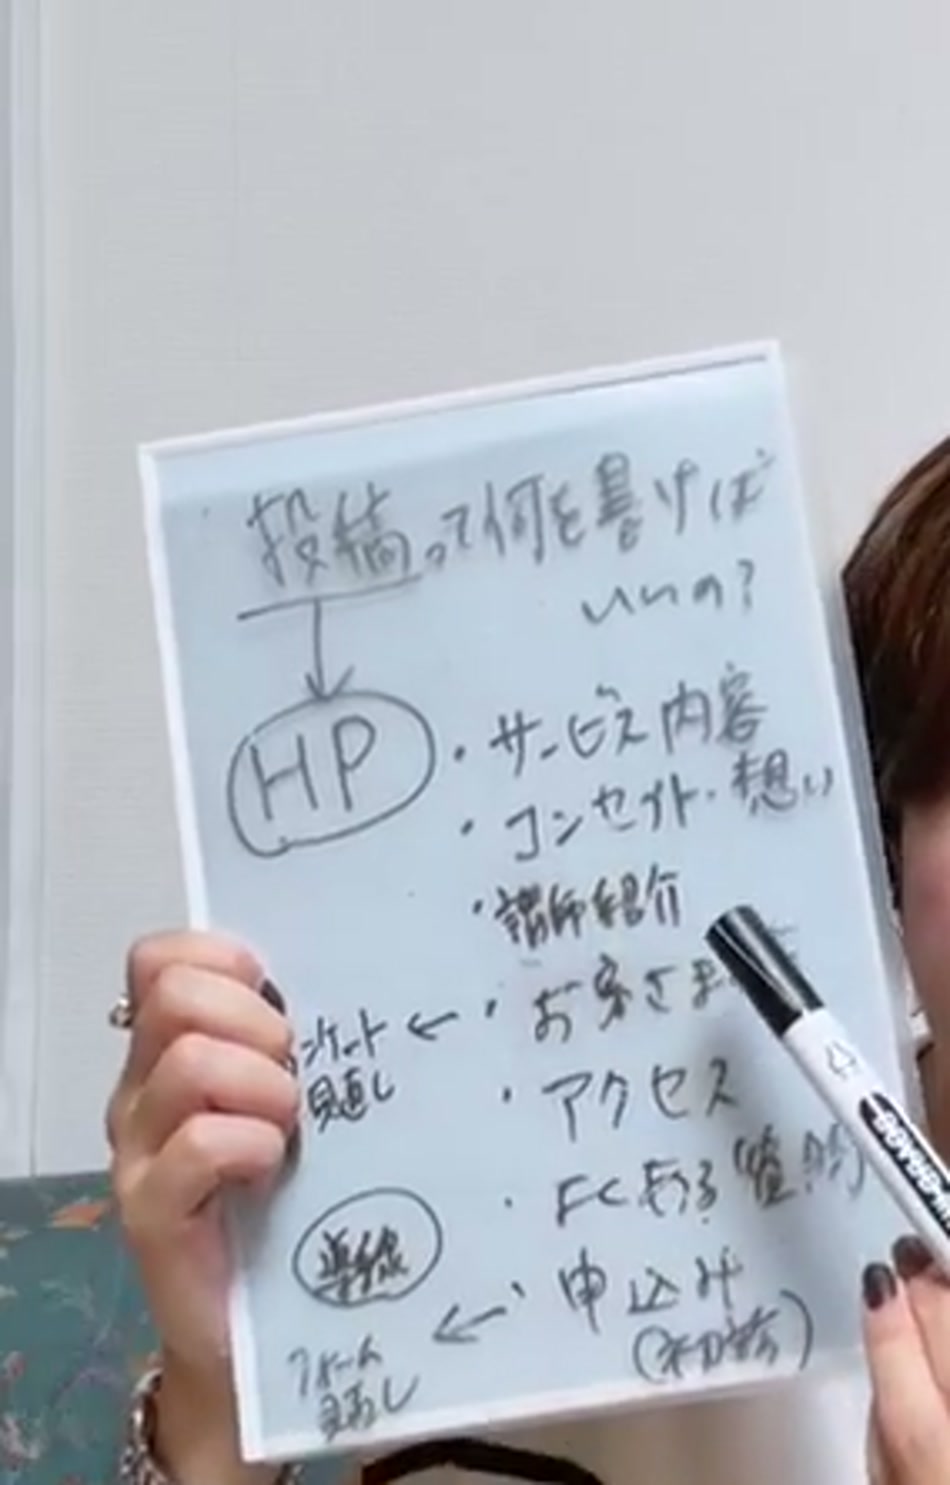 投稿って何を書けば
いいの?
HP
・サービス内容
・コンセプト・想い
・講師紹介
・お客さま
ンケート ←
見直し
・アクセス
・よくある質問
導線
・申込み
(初診)
←
フォーム
見直し